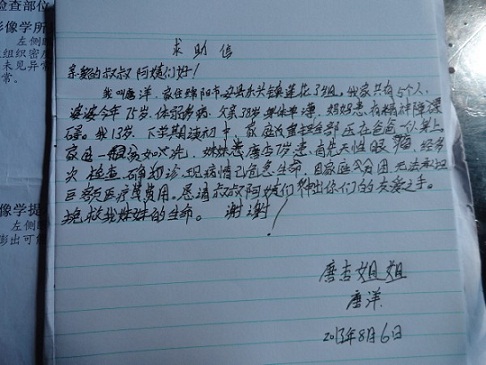 检查部位
影像学所
左侧
组织密度
未见异常
常。
像学提
左侧
膨出可
求助信
亲爱的叔叔阿姨们好!
我叫唐洋,家住绵阳市安县乐兴镇莲花3组,我家共有5个人,
婆婆今年75岁,体弱多病,父亲38岁,身体单薄,妈妈患有精神障碍
碍。我13岁,下学期读初中,家庭重担全部压在爸爸一个人身上
家庭一贫如洗,妹妹唐杏7岁,患先天性眼癌,经多
次检查确初诊,现病情已危急生命,因家庭贫困无法承担
巨额医疗费用,恳请叔叔阿姨们伸出你们的关爱之手。
挽救我妹妹的生命。谢谢!
唐杏姐姐
唐洋
2013年8月6日